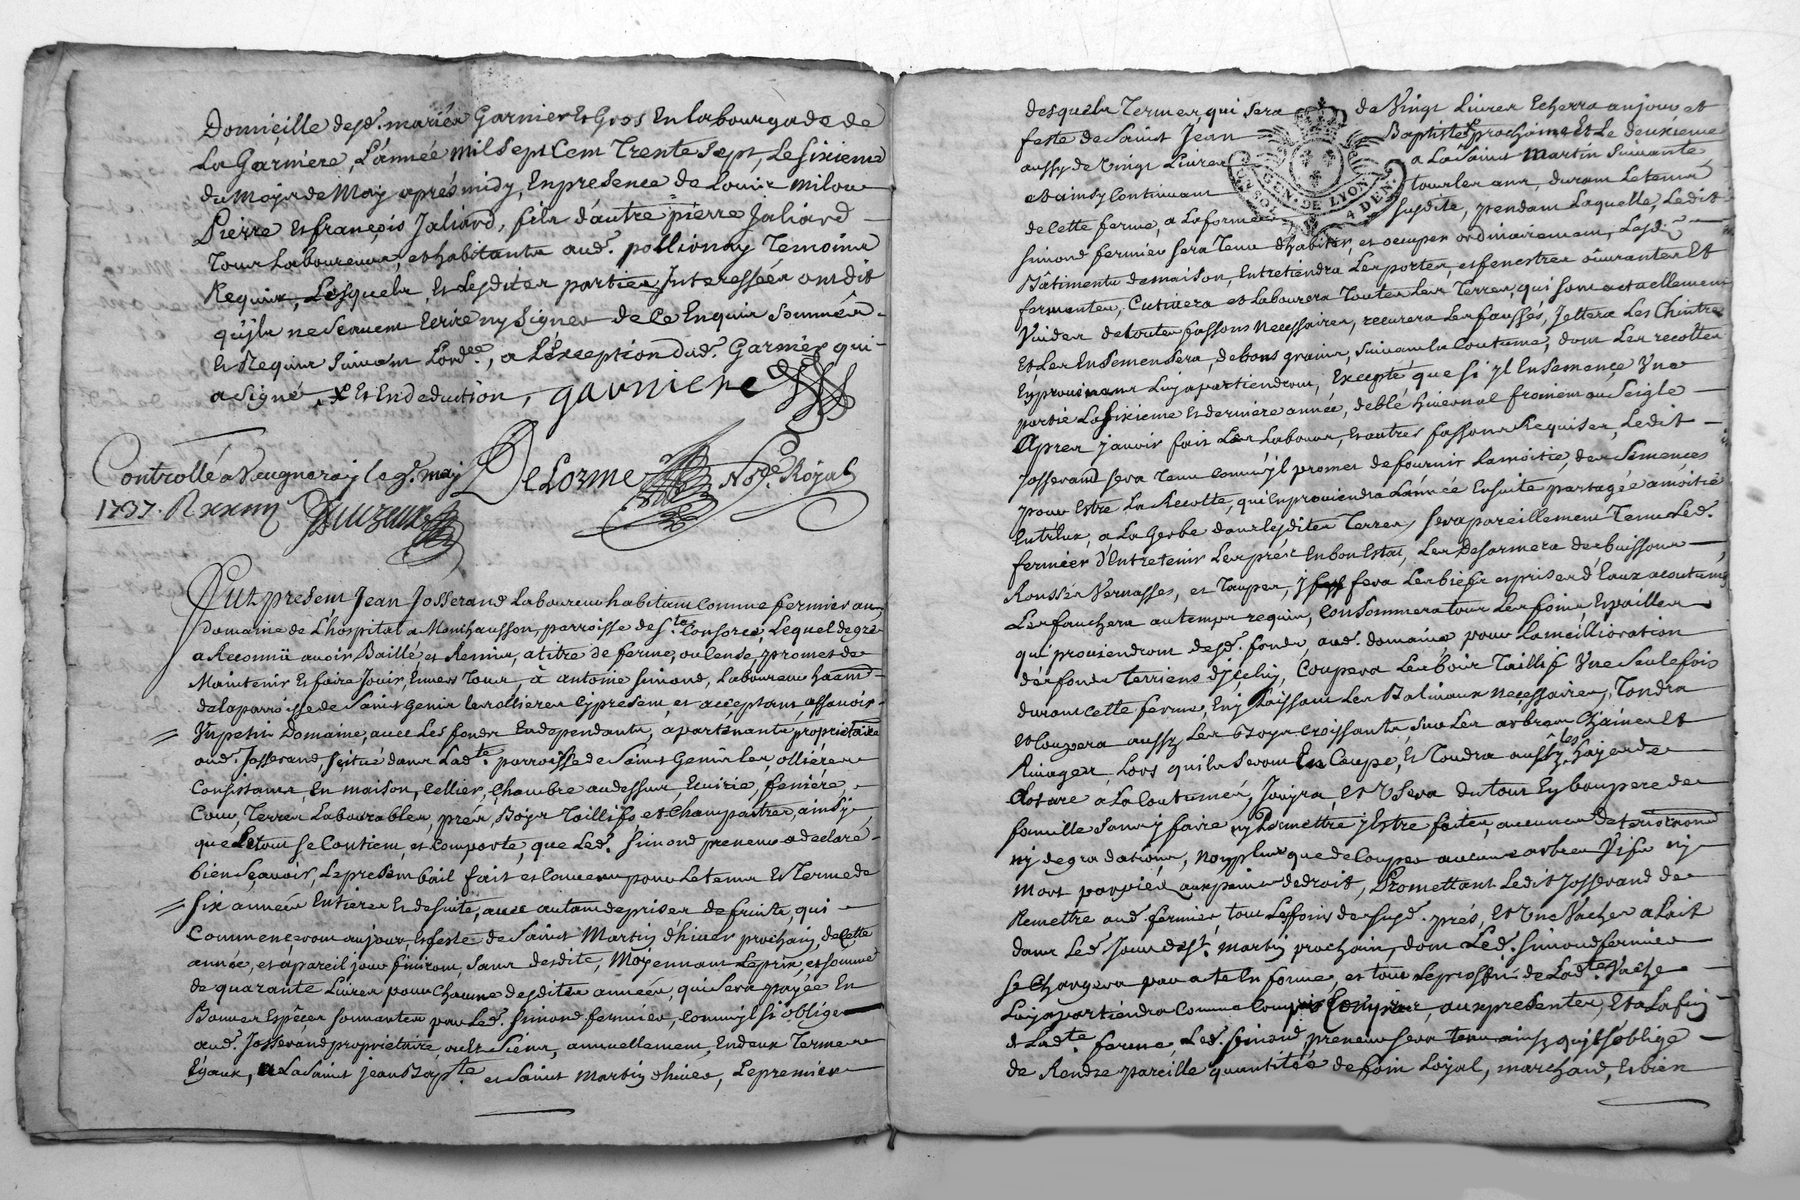 Domicille desd. mariés Garnier et Gros en la bourgade de
La Garniere, L'année mil sept Cent Trente sept, Le sixieme
du Moys de May aprés midy, En presence de Louis Milon
Pierre et françois Jaliard, fils d'autre pierre Jaliard
Tous Laboureurs, et habitants aud. pollionay Temoins
Requis, Lesquels, et Lesdites parties Interessées ont dit
qu'ils ne sçavent Ecrire ny signer de ce Enquis sommés
et Requis suivant Lord.ce, a L'exception dud. Garnier qui
a signé, et En deduction, garniere
Controllé a Vaugneray le 9e. may DeLorme No.re Royal
1737. R
Fut present Jean Josserand Laboureur habitant comme fermier au
domaine de L'hospital a Monthausson, parroisse de S.te Consorce, Lequel de gré
a Reconnü avoir Baillé et Remis, a titre de ferme, ou Cense, promet de
Maintenir et faire Jouir, Envers Tous, à antoine simond, Laboureur habitant
de la parroisse de Saint genis les ollieres Cy present, et acceptant, assavoir
Un petit Domaine, avec Les fonds En dependants, apartenants, proprietaire
aud. Josserand, scitué dans Lad.te parroisse de Saint Genis les ollières
Consistant, En maison, Cellier, Chambre au dessus, Ecurie, feniére,
Cour, Terres Labourables, prés, Boys Taillifs et Champastres, ainsy
que Letout se Contient, et Comporte, que Led. Simond preneur a declaré
bien sçavoir, Le present bail fait et Convenu pour Le tems et Terme de
six années Entieres et de suite, avec autant de prises de fruits, qui
Commenceront au jour et feste de Saint Martin d'hiver prochain, de cette
année, et a pareil jour finiront, sans dédite, Moyennant Le prix et somme
de quarante Livres pour chacune desdites années, qui sera payée En
Bonnes Espèces sonnantes par Led. Simond fermier, Comm'yl s'i oblige
aud. Josserand proprietaire, ou es siens, annuellement, En deux Termes
Egaux, a La Saint jean Bapt.te et Saint Martin d'hiver, Le premier
desquels Termes, qui sera de Vingt Livres Echerra au jour et
feste de Saint Jean Baptiste prochaine Et Le deuxième
aussy de Vingt Livres a La Saint Martin Suivante
et ainsy Continuant tous les ans, durant Le tems
GEN. DE LYON
UN SOL 4 DEN.
de Cette ferme, a La forme susdite, pendant Laquelle, Ledit
simond fermier sera Tenu d'habiter, et occuper ordinairement, Lesd.
Bâtiments de maison, Entretiendra Les portes, et fenestres ouvrantes Et
fermantes, Cutivera et Labourera Toutes Les Terres, qui sont actuellement
Vuides de toutes fassons Necessaires, recurera Les faussés, Jettera Les Chintres
Et Les Ensemensera, de bons grains, suivant La Coutume, dont Les recoltes
En provenant Luy apartiendront, Excepté que si yl Ensemençe Une
partie La sixieme et derniére année, de blé hivernal froment ou Seigle
Apres y avoir fait Les Labours, et autres fassons Requises, Ledit
Josserand sera Tenu Comm'yl promet de fournir La moitié, des Semences
pour Estre La Recolte, qui En proviendra L'année Ensuite partagée a moitié
Entr'Eux, a La Gerbe dans Lesdites Terres, sera pareillement Tenu Led.
fermier d'Entretenir Les prés En bon Estat, Les desarmera des buissons
Ronsses Vernasses, et Taupes, y fera Les biefs et prises d'Eaux acoutumés
Les fauchera au temps requis, Consommera tous Les foins Et pailles
qui proviendront desd. fonds, aud. domaine pour La meillioration
des fonds Terriens d'jcelui, Coupera Les bois Taillif Une seule fois
durant cette ferme, En y Laissant Les Balivaux neçessaires, Tondra
et Coupera aussy Les Boys Croissants sur Les arbres Chaines et
Rivages Lors qu'ils seront En Coupe, et Tondra aussy les hayes de
Closture a La Coutumée, Jouyra, et Usera du tout En bon pere de
famille sans y faire ny Permettre y Estre faites, aucunes deteriorations
ny degradations, Non plus que de Couper aucuns arbres Vifs ny
Mort par pied, aux peines de droit, Promettant Ledit Josserand de
Remettre aud. fermier tous Les foins des susd. prés, Et Une Vache a Lait
dans Led. Jour de S.t Martin prochain, dont Led. Simond fermier
se Chargera par acte En forme, et tous Les profits de Lad.te Vache
Luy apartiendra Comme Compris aux presentes, Et a La fin
de Lad.te ferme Led. Simond preneur sera tenu ainsy qu'il s'oblige
de Rendre pareille quantitée de foin Loyal, marchand, et bien